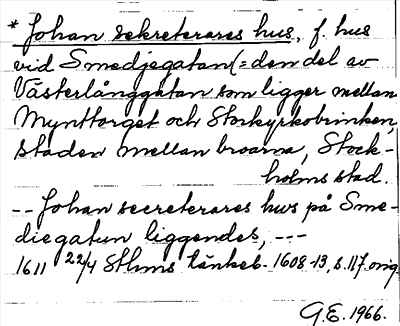 * Johan sekreterares hus, f. hus
vid Smedjegatan (= den del av
Västerlånggatan som ligger mellan
Mynttorget och Storkyrkobrinken,
Staden mellan broarna, Stock-
holms stad.
-- Johan secreterares hus på Sme-
diegatun liggendes, ---
1611 22/4 Sthms tänkeb. 1608-13, s. 117 orig
G.E. 1966.